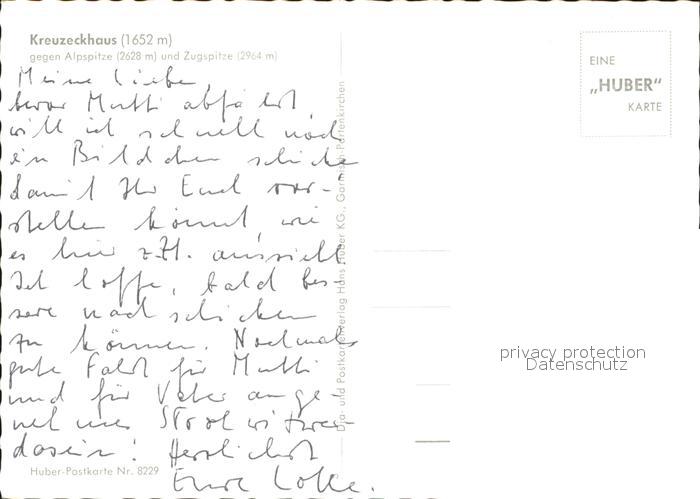 Kreuzeckhaus (1652 m)
gegen Alpspitze (2628 m) und Zugspitze (2964 m)
Meine Lieben
bevor Mutti abfährt,
will ich schnell noch
ein Bildchen schicken
damit Ihr Euch vor-
stellen könnt, wie
es hier z.Zt. aussieht.
Ich hoffe, bald bes-
sere nachschicken
zu können. Nochmals
gute Fahrt für Mutti
und für Vater ange-
nehmes Strohwitwer-
dasein! Herzlichst
Eure
Huber-Postkarte Nr. 8229
Dia- und Postkartenverlag Hans Huber KG., Garmisch-Partenkirchen
EINE
„HUBER"
KARTE
privacy protection
Datenschutz